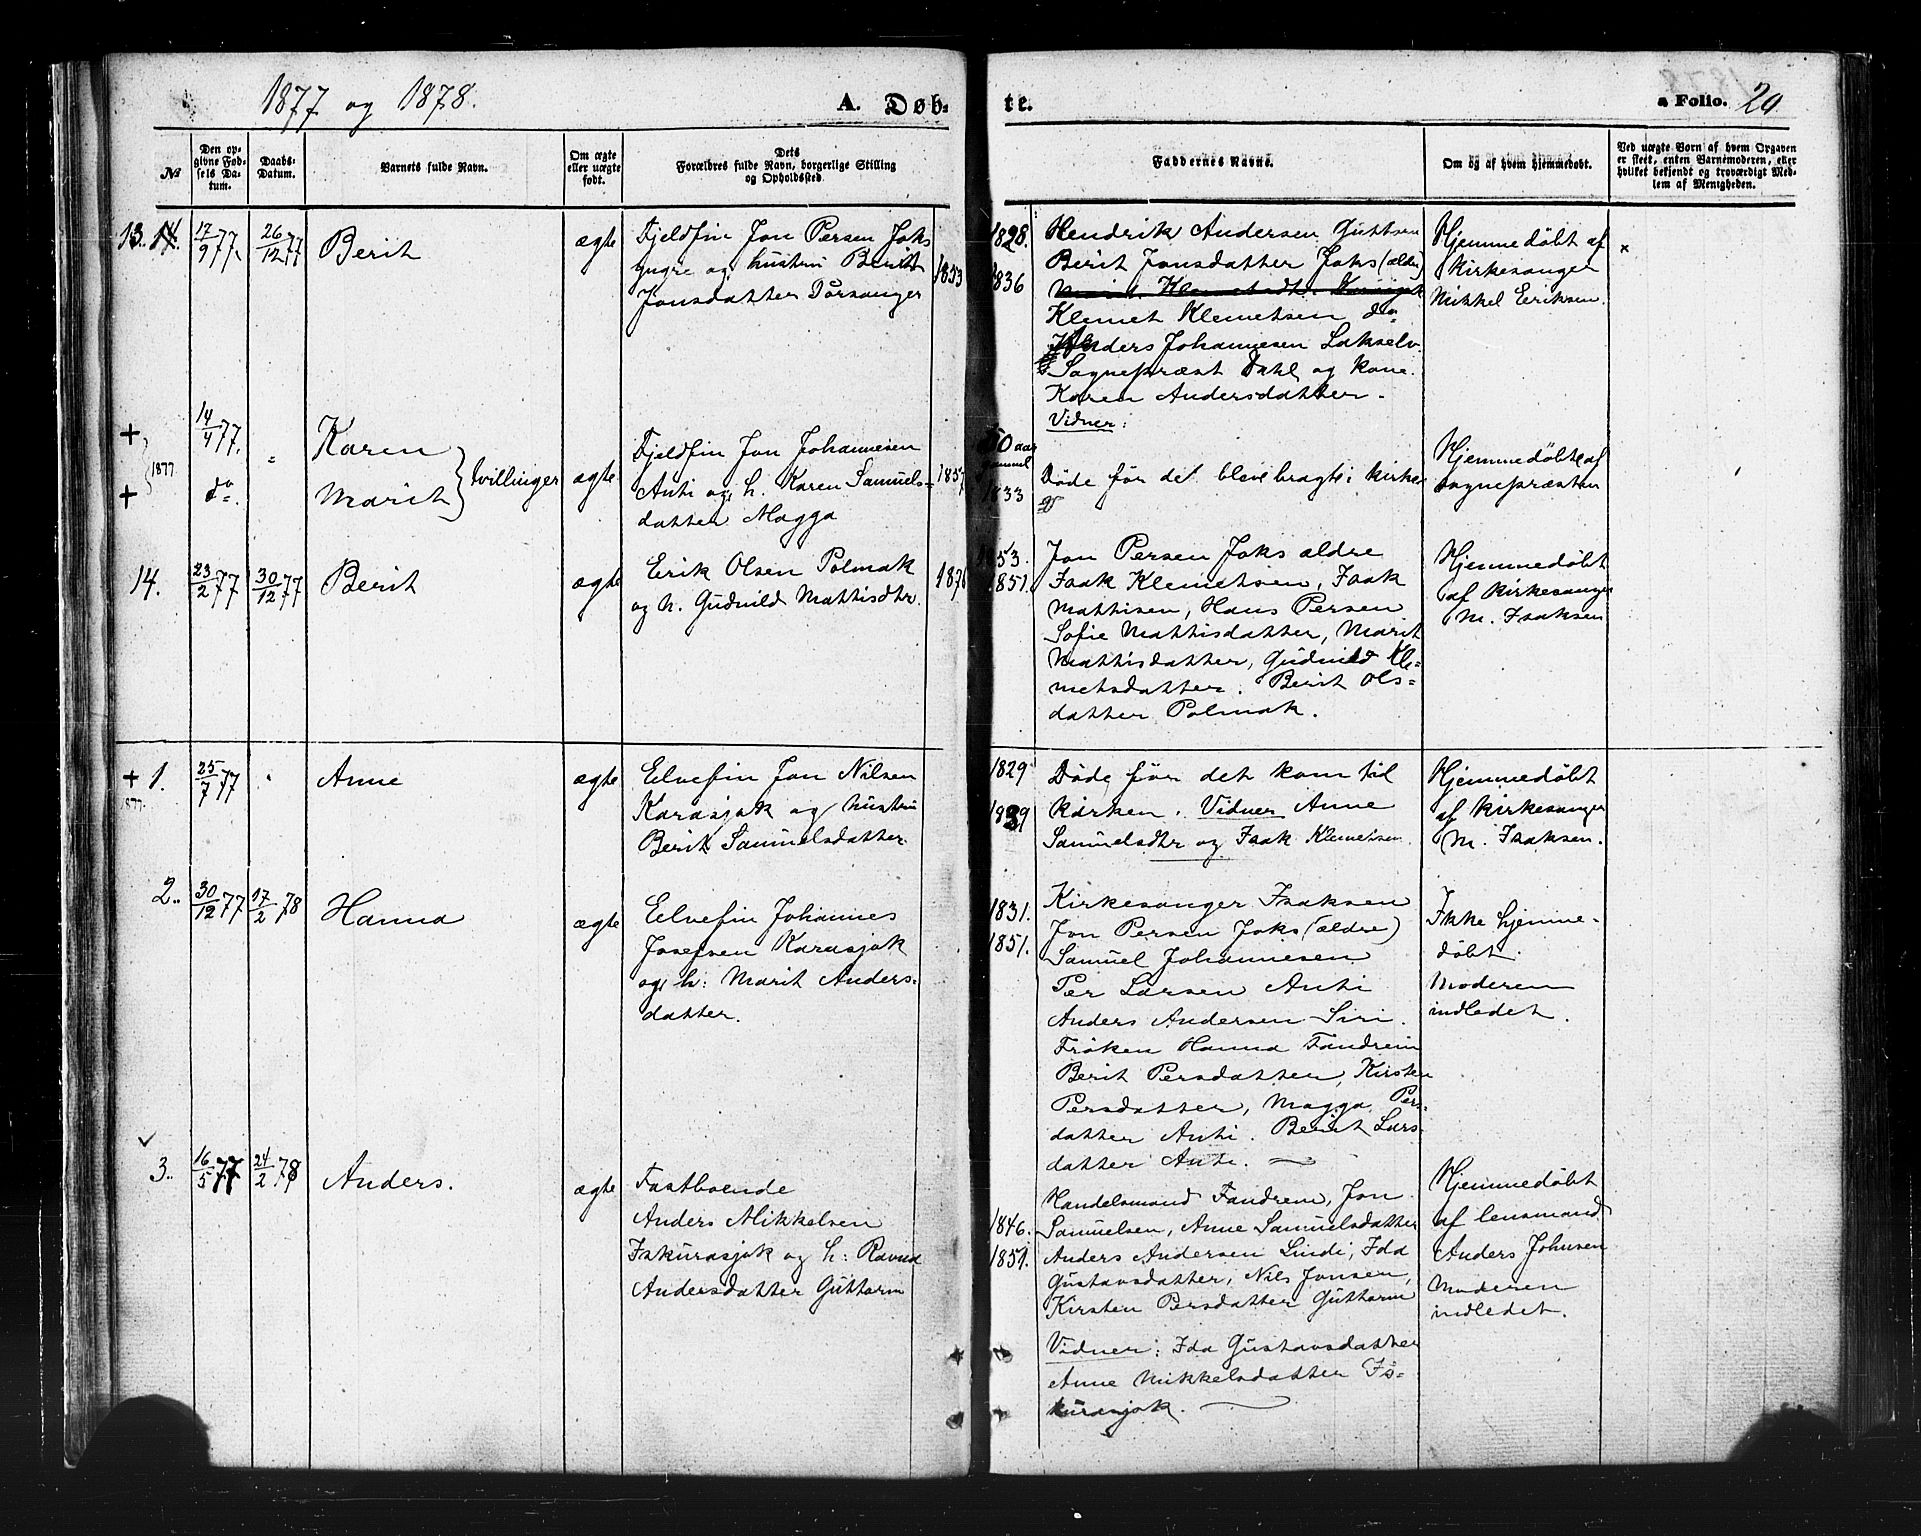 1877 og 1878.
A. Døb-
te.
a Folio. 20
№
Den op-
givne Fød-
sels Da-
tum.
Daabs-
Datum.
Barnets fulde Navn.
Om ægte
eller uægte
født.
Dets
Forældres fulde Navn, borgerlige Stilling
og Opholdssted.
Faddernes Navne.
Om og af hvem hjemmedøbt.
Ved uægte Børn af hvem Opgaven
er skeet, enten Barnemoderen, eller
hvilket bekjendt og troværdigt Med-
lem af Menigheden.
13. 14.
17/9 77.
26/12 77
Berit
ægte
Fjeldfin Jon Persen Joks
yngre og hustru Berit
Jonsdatter Porsanger
1853
1828.
1836
Hendrik Andersen Guttorm
Berit Jonsdatter Joks (ældre)
Klemet Klemetsen do
Anders Johannesen Lakselv
Sognepræst Dahl og kone.
Karen Andersdatter.
Vidner:
Hjemmedøbt af
Kirkesanger
Mikkel Eriksen.
x
+
+
1877
14/4 77.
do.
"
Karen
Marit
} tvillinger
ægte
Fjeldfin Jon Johannesen
Anti og h. Karen Samuels-
datter Magga
1857
50 aar
gammel
1833
Døde før det bleve bragte i kirke
Hjemmedøbt af
sognepræsten
14.
23/2 77
30/12 77
Berit
ægte
Erik Olsen Polmak
og h. Gudnild Mattisdtr.
1853.
1851.
Jon Persen Joks ældre
Isak Klemetsen, Isak
Mattisen, Hans Persen
Sofie Mattisdatter, Marit
Mattisdatter, Gudnild Kle-
metsdatter. Berit Ols-
datter Polmak.
Hjemmedøbt
af Kirkesanger
M. Isaksen
+ 1.
1877.
25/7 77
Anne
ægte
Elvefin Jon Nilsen
Karasjok og hustru
Berit Samuelsdatter
1829
1839
Døde før det kom til
kirken. Vidner Anne
Samuelsdtr og Isak Klemetsen.
Hjemmedøbt
af Kirkesanger
M. Isaksen.
2.
30/12 77
17/2 78
Hanna
ægte
Elvefin Johannes
Josefsen Karasjok
og h: Marit Anders-
datter.
1831.
1851.
Kirkesanger Isaksen
Jon Persen Joks (ældre)
Samuel Johannesen
Per Larsen Anti
Anders Andersen Siri.
Frøken Hanna Fandrem
Berit Persdatter, Kirsten
Persdatter, Magga Pers-
datter Anti. Berit Lars-
datter Anti.
Ikke hjemme-
døbt.
Moderen
indledet.
3.
16/5 77
24/2 78
Anders.
ægte
Fastboende
Anders Mikkelsen
Iskurasjok og h: Ravna
Andersdatter Guttorm
1846.
1851.
Handelsmand Fandrem, Jon
Samuelsen, Anne Samuelsdatter
Anders Andersen Lindi, Ida
Gustavsdatter, Nils Jonsen,
Kirsten Persdatter Guttorm
Vidner: Ida Gustavsdatter
Anne Mikkelsdatter Is-
kurasjok.
Hjemmedøbt
af lensmand
Anders Johnsen
Moderen
indledet.